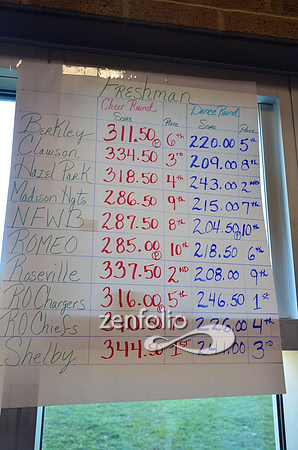 Freshman
Cheer Round Dance Round
Score Place Score Place
Berkley 311.50 P 6th 220.00 5th
Clawson 334.50 3rd 209.00 8th
Hazel Park 318.50 4th 243.00 2nd
Madison Hgts 286.50 9th 215.00 7th
NFWB 287.50 8th 204.50 P 10th
ROMEO 285.00 P 10th 218.50 6th
Roseville 337.50 2nd 208.00 9th
RO Chargers 316.00 P 5th 246.50 1st
RO Chiefs 4th
Shelby 1st 3rd
zenfolio